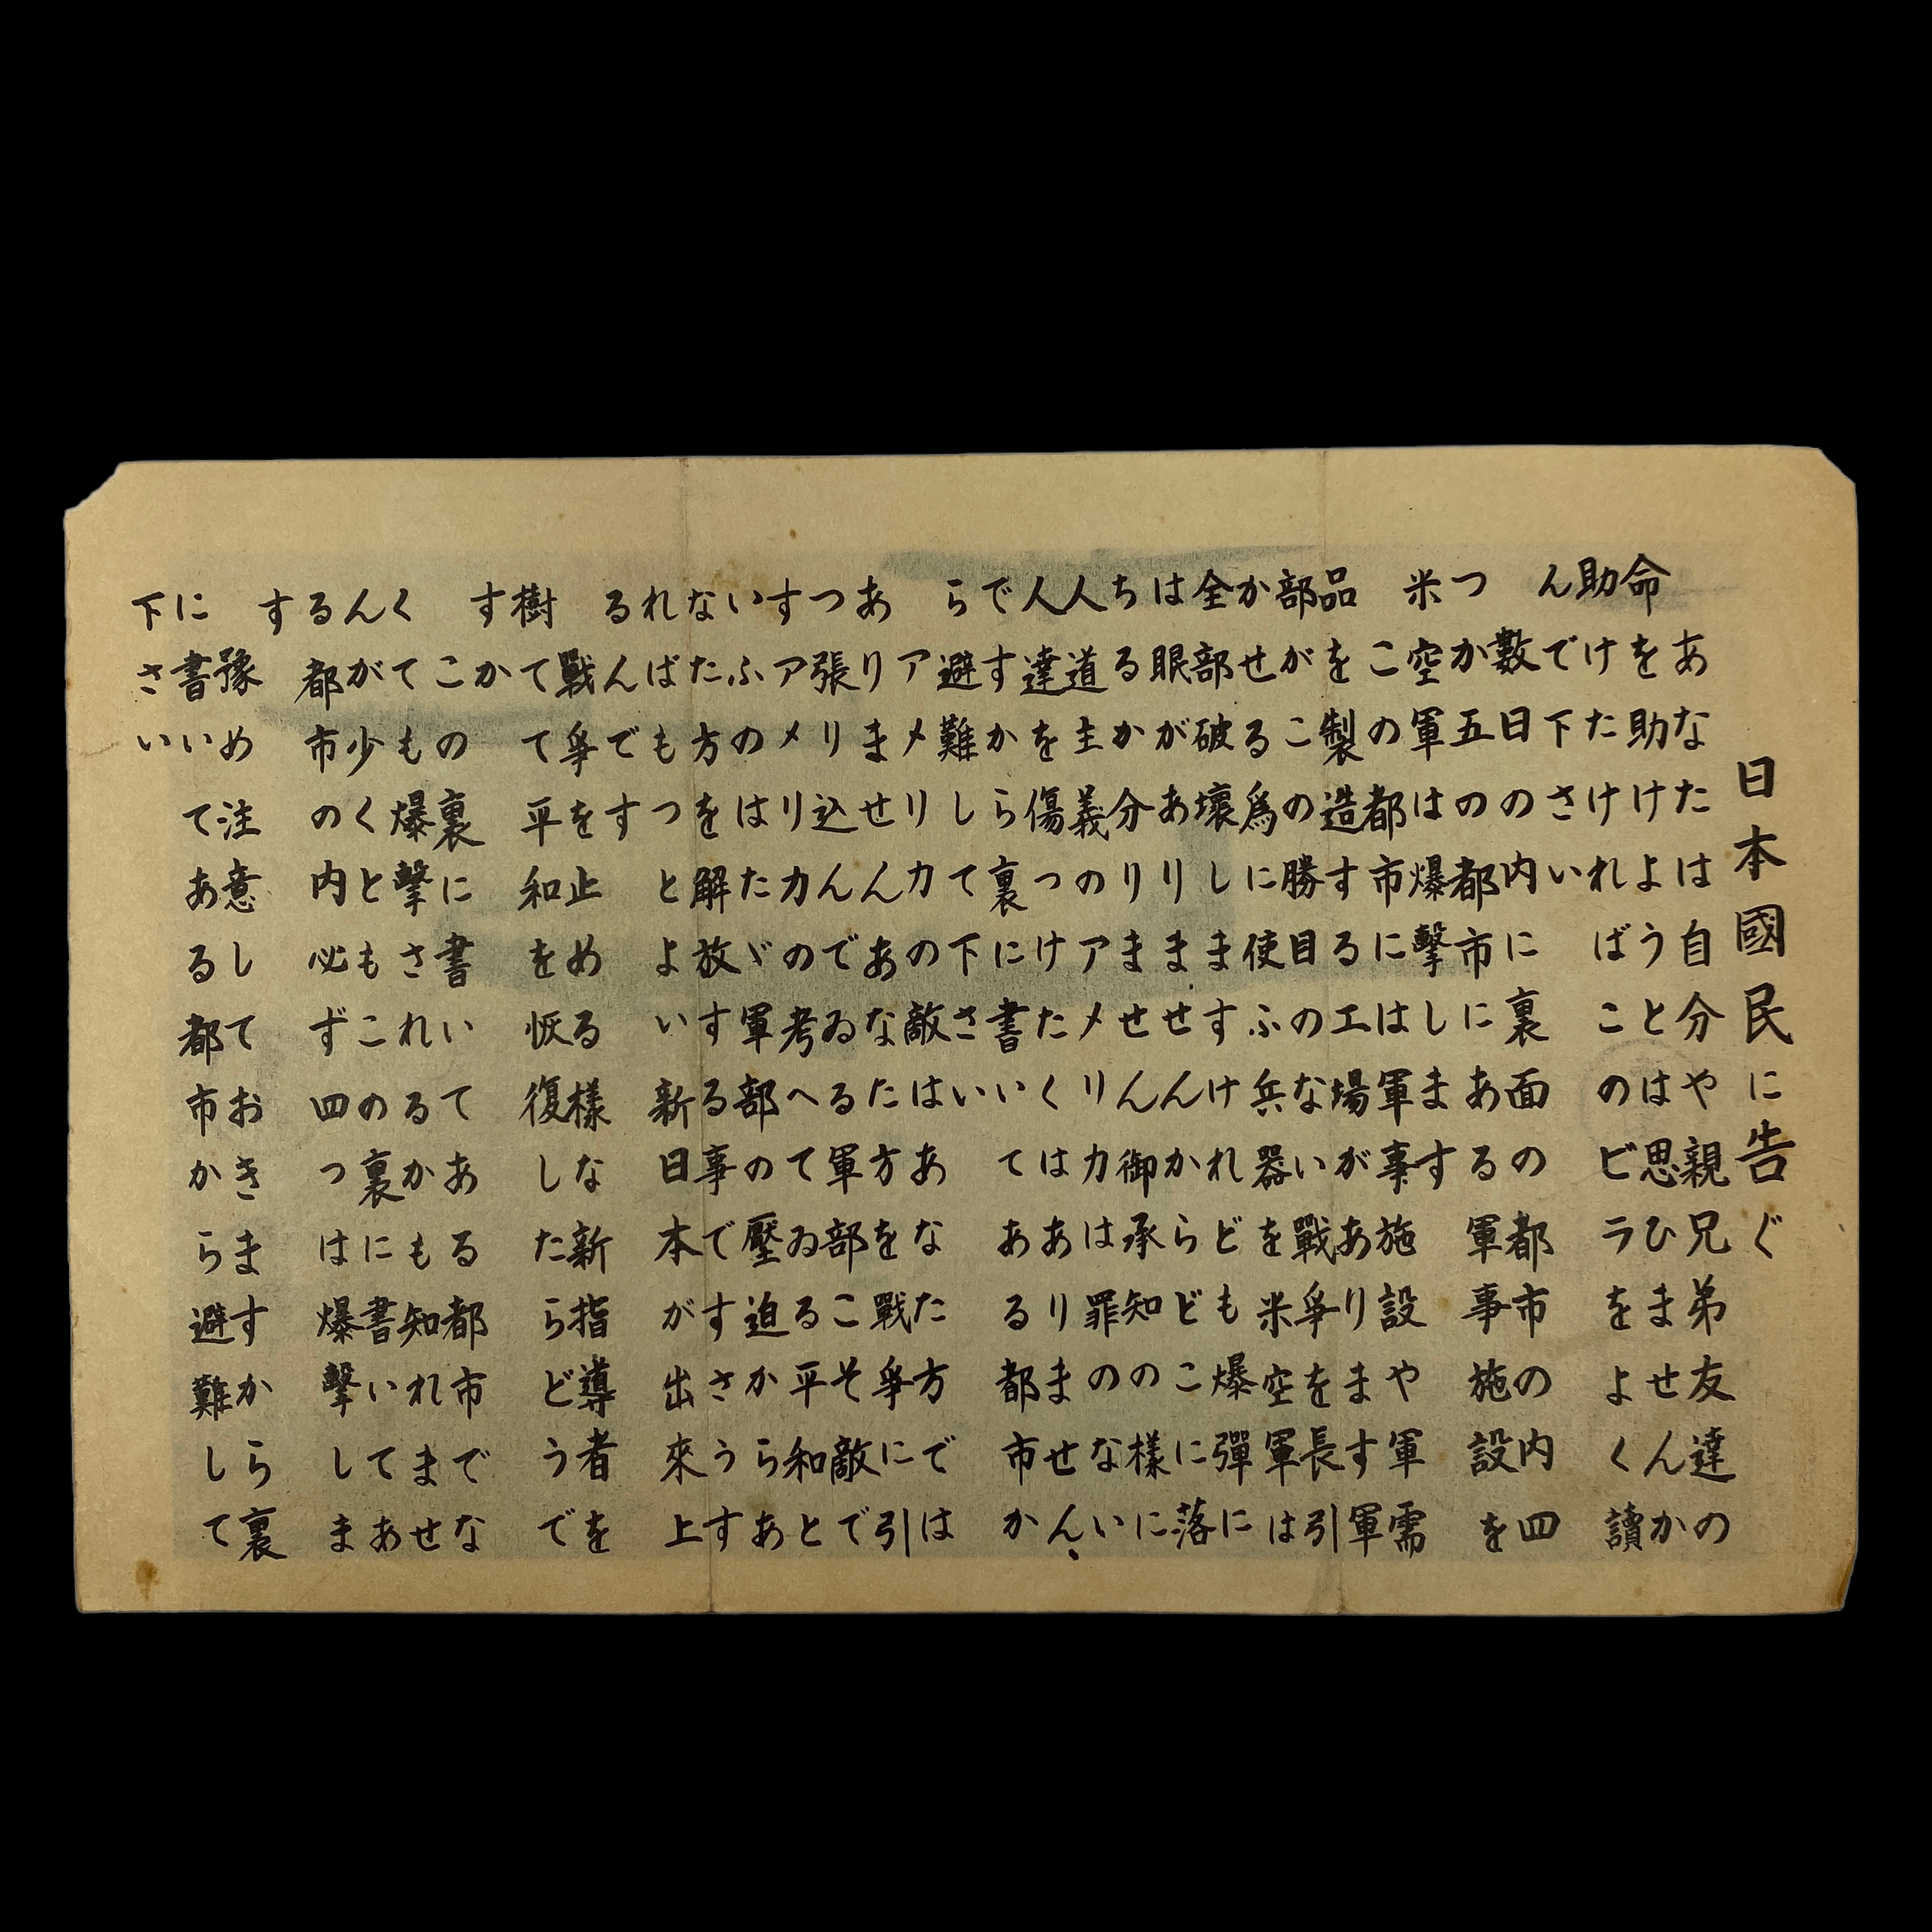 日本國民に告ぐ
あなたは自分や親兄弟友達の
命を助けようとは思ひませんか
助けたければこのビラをよく讀
んで下さい
數日の内に裏面の都市の内四
つか五つの都市にある軍事施設を
米空軍は爆擊します
この都市には軍事施設や軍需
品を製造する工場があります軍
部がこの勝目のない戰爭を長引
かせる爲に使ふ兵器を米空軍は
全部破壞しますけれども爆彈に
は眼がありませんからどこに落
ちるか分りません御承知の樣に
人道主義のアメリカは罪のない
人達を傷つけたくはありません
ですから裏に書いてある都市か
ら避難して下さい
アメリカの敵はあなた方では
ありませんあなた方を戰爭に引
つ張り込んでゐる軍部こそ敵で
すアメリカの考へてゐる平和と
いふのはたゞ軍部の壓迫からあ
なた方を解放する事ですさうす
ればもつとよい新日本が出來上
るんです
戰爭を止める樣な新指導者を
樹てて平和を恢復したらどうで
すか
この裏に書いてある都市でな
くても爆擊されるかも知れませ
んが少くともこの裏に書いてあ
る都市の内必ず四つは爆擊しま
す
豫め注意しておきますから裏
に書いてある都市から避難して
下さい